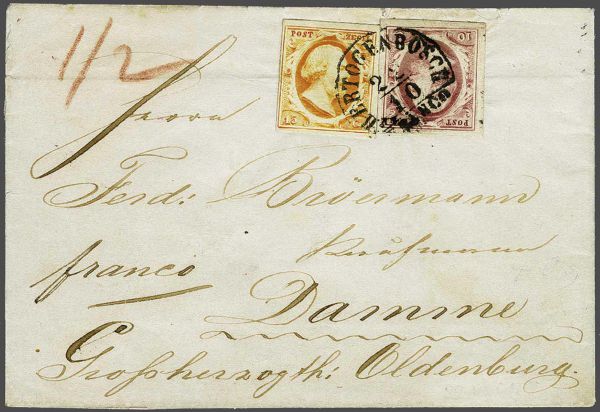 1/2
POST ZEGEL
POST 10
HERTOGENBOSCH
2/10
FRANCO
Herrn
Ferd: Brörmann
Kaufmann
franco
Damme
Großherzogth: Oldenburg.